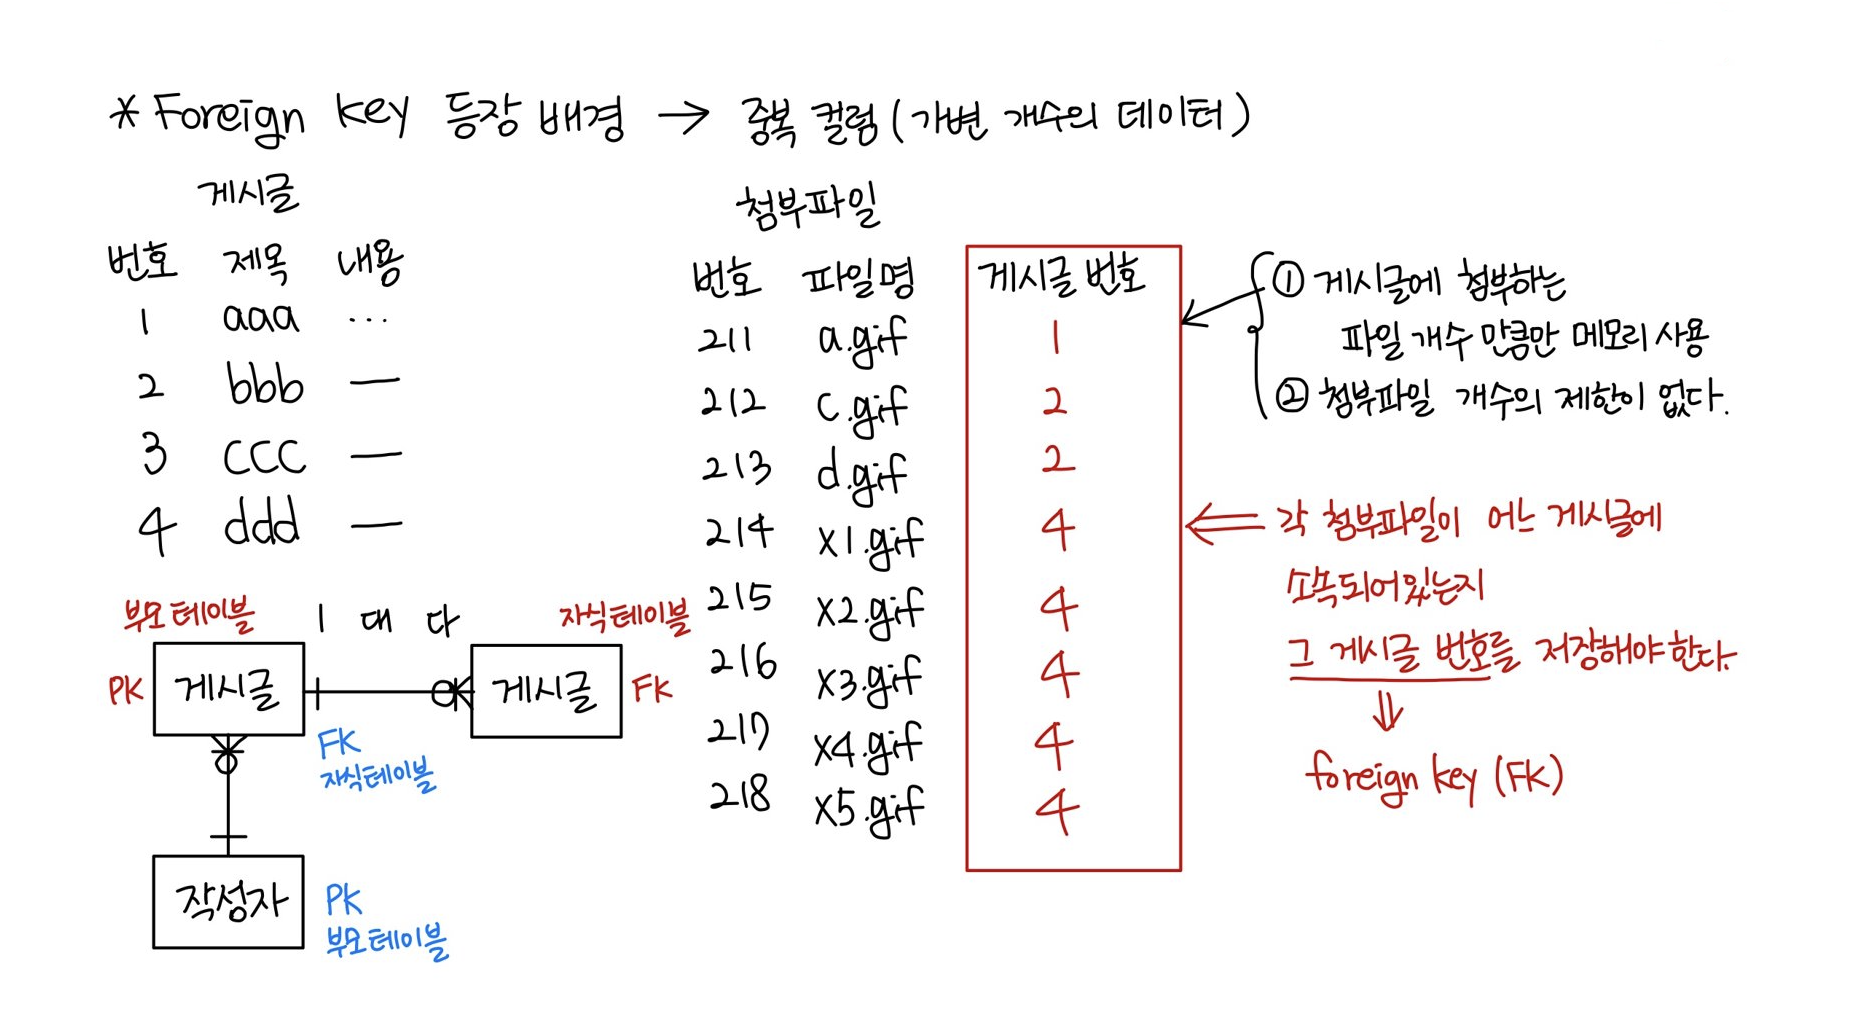 * Foreign key 등장 배경 → 중복 컬럼 (가변 개수의 데이터)
게시글
번호 제목 내용
1 aaa ...
2 bbb —
3 ccc —
4 ddd —
첨부파일
번호 파일명 게시글 번호
211 a.gif 1
212 c.gif 2
213 d.gif 2
214 x1.gif 4
215 x2.gif 4
216 x3.gif 4
217 x4.gif 4
218 x5.gif 4
① 게시글에 첨부하는
파일 개수 만큼만 메모리 사용
② 첨부파일 개수의 제한이 없다.
각 첨부파일이 어느 게시글에
소속되어있는지
그 게시글 번호를 저장해야한다.
foreign key (FK)
부모테이블 1 대 다 자식테이블
PK 게시글 게시글 FK
FK
자식테이블
작성자 PK
부모테이블